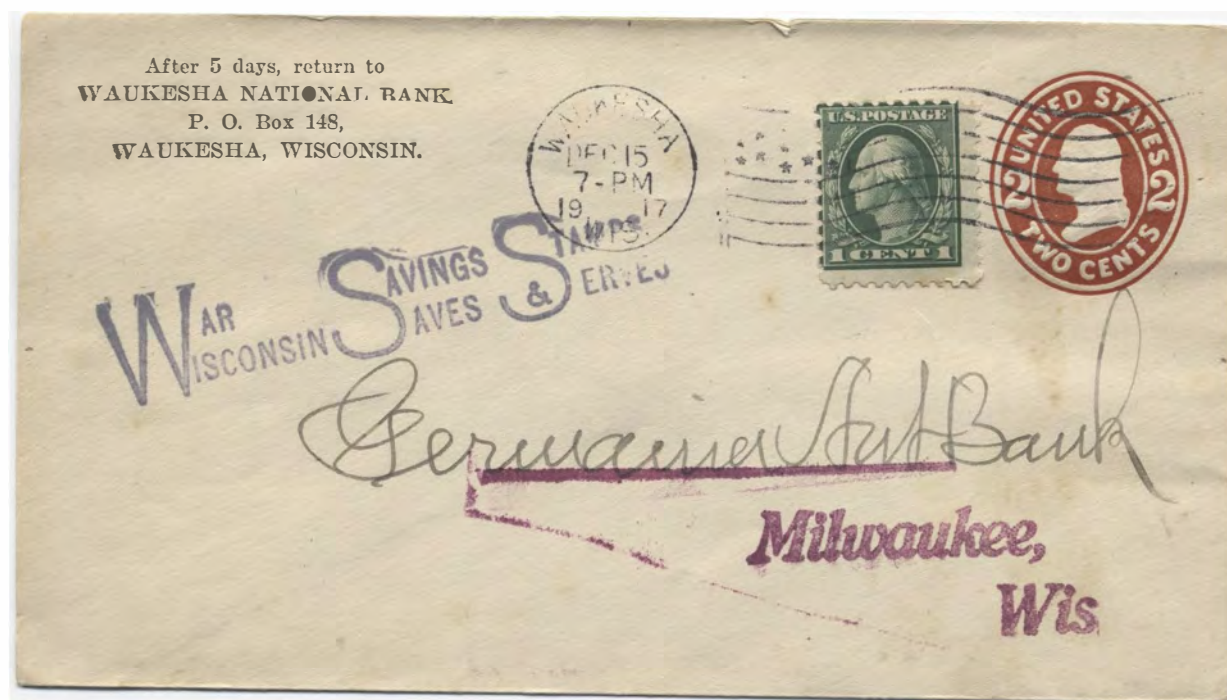 After 5 days, return to
WAUKESHA NATIONAL BANK
P. O. Box 148,
WAUKESHA, WISCONSIN.
WAUKESHA
DEC 15
7-PM
1917
WIS.
U.S. POSTAGE
1 CENT 1
UNITED STATES
2 2
TWO CENTS
WAR SAVINGS STAMPS
WISCONSIN SAVES & SERVES
Germania Nat Bank
Milwaukee,
Wis